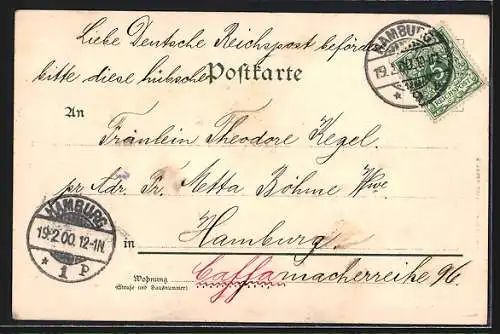 Liebe Deutsche Reichspost beförder
bitte diese hübsche Postkarte
HAMBURG
19.2.00.12-1N.
5
An
Fräulein Theodore Kegel.
pr Adr. Fr. Metta Böhme Wwe
HAMBURG
19.2.00.12-1N.
* 1 P *
in Hamburg
Wohnung
(Straße und Hausnummer)
Caffamacherreihe 96.